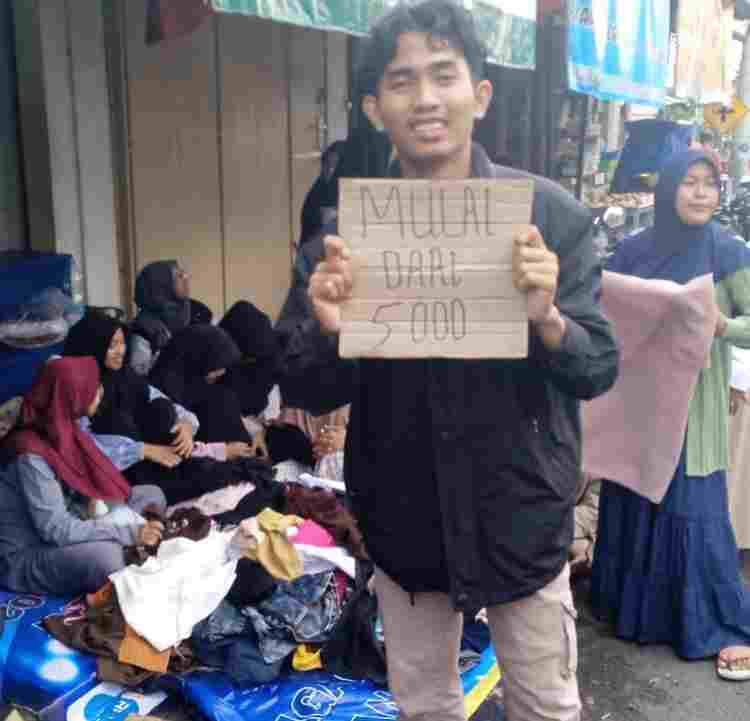 MULAI
DARI
5000